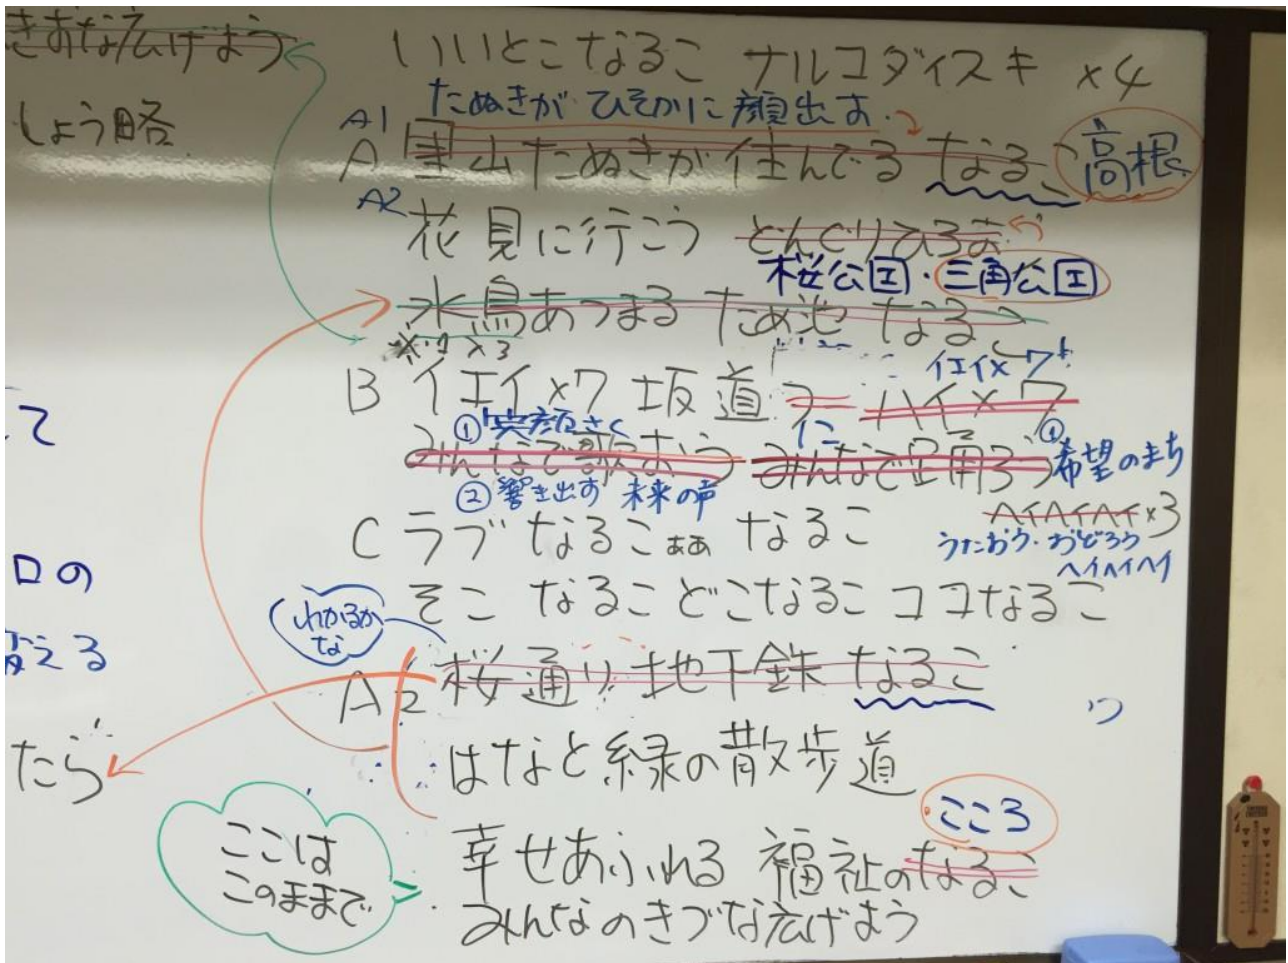 きずな広げよう
しょう略
て
ロの
変える
たら
いいとこなるこ ナルコダイスキ ×4
たぬきが ひそかに顔出す
A1
A 里山たぬきが住んでる なるこ 高根
A2
花見に行こう どんぐりひろば
桜公園・三角公園
水鳥あつまる ため池 なるこ
×3
イエイ×7
B イエイ×7 坂道 ハイ×7
① 笑顔さく に ①
みんなで歌おう みんなで踊ろう 希望のまち
② 響き出す 未来の声
ヘイヘイヘイ×3
C ラブ なるこぁぁ なるこ
うたおう・おどろう
ヘイヘイヘイ
そこ なるこ どこなるこ ココなるこ
わかるか
な
A2 桜通り 地下鉄 なるこ
はなと緑の散歩道
こころ
ここは
このままで
幸せあふれる 福祉のなるこ
みんなのきづな広げよう